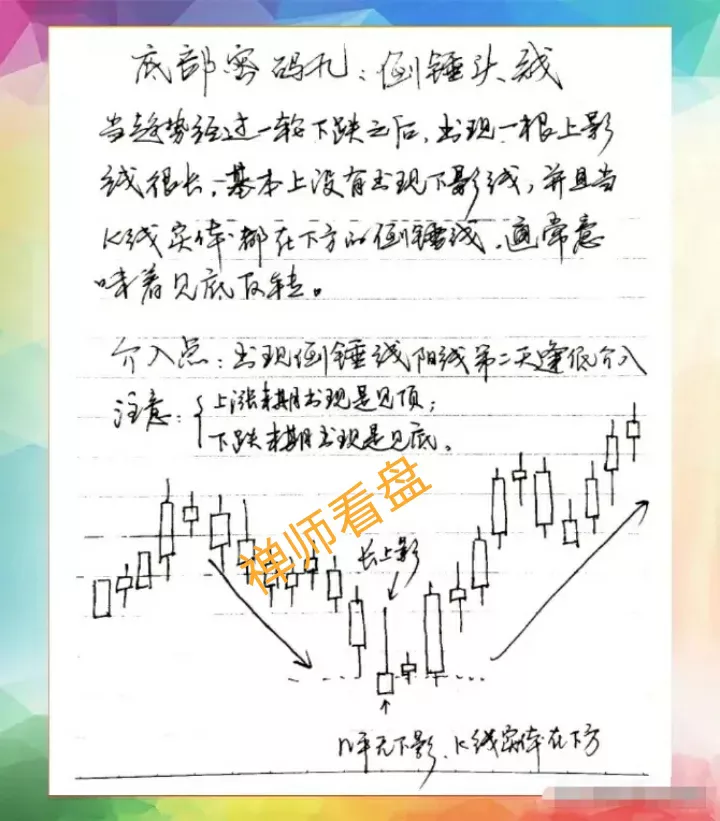 底部密码九：倒锤头线
当趋势经过一轮下跌之后，出现一根上影
线很长，基本上没有出现下影线，并且当
K线实体都在下方的倒锤线，通常意
味着见底反转。
介入点：出现倒锤线阳线第二天逢低介入
注意：
上涨末期出现是见顶；
下跌末期出现是见底。
禅师看盘
长上影
几乎无下影、K线实体在下方